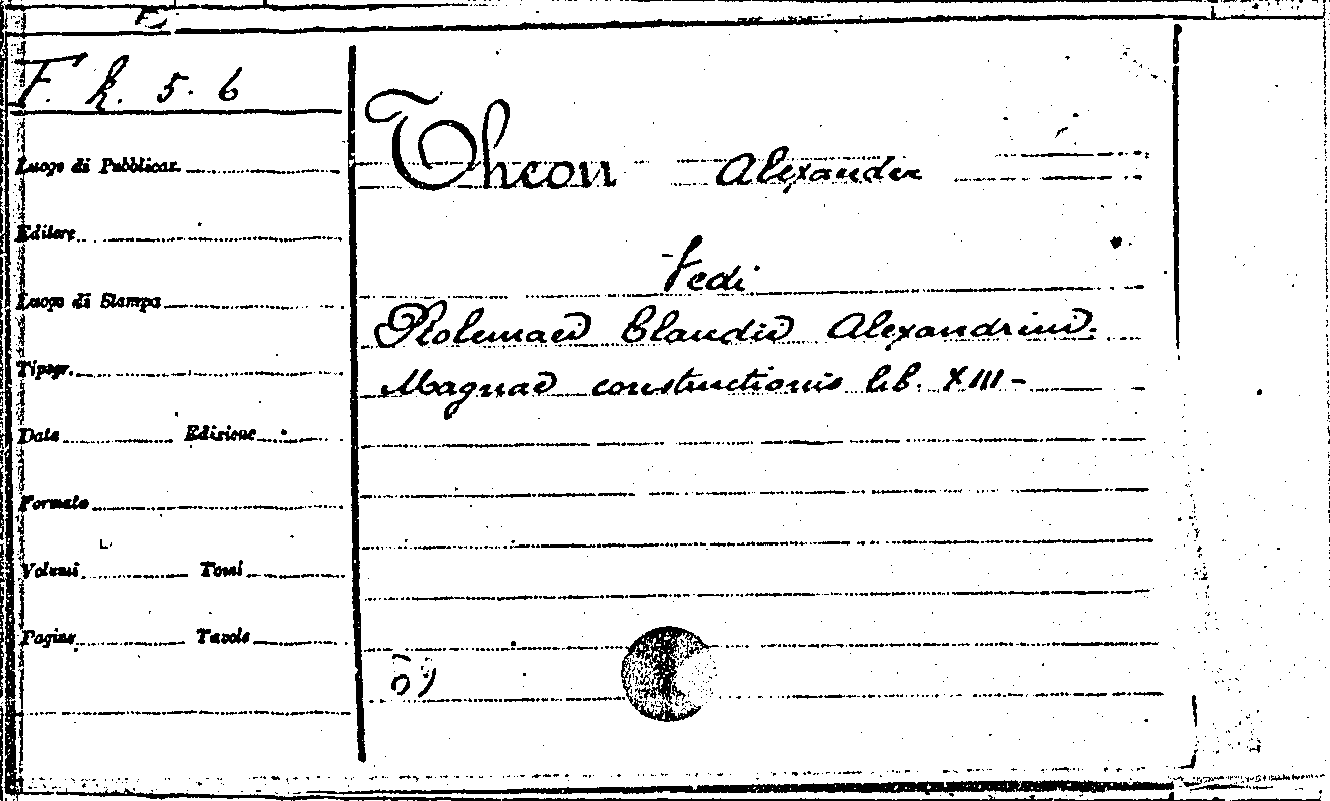 F. k. 5. 6
Luogo di Pubblicaz.
Editore
Luogo di Stampa
Tipogr.
Data Edizione
Formato
Volumi Tomi
Pagine Tavole
Theon Alexander
Vedi
Ptolemaei Claudii Alexandrini.
Magnae constructionis lib. XIII -